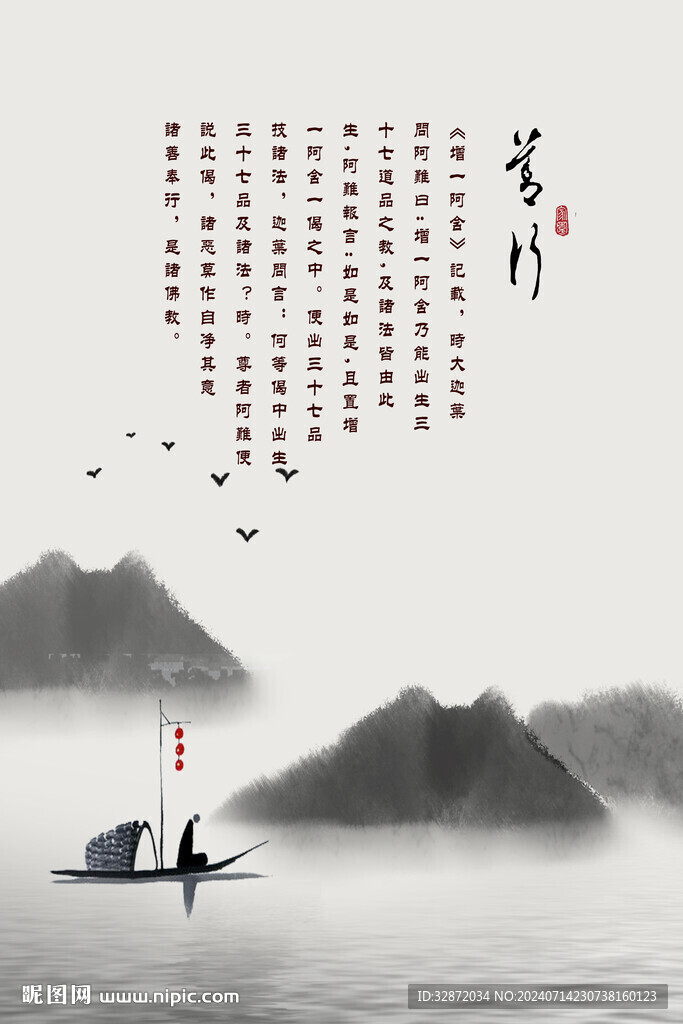 善行
《增一阿含》記載，時大迦葉
問阿難曰：增一阿含乃能出生三
十七道品之教，及諸法皆由此
生，阿難報言：如是如是，且置增
一阿含一偈之中。便出三十七品
技諸法，迦葉問言：何等偈中出生
三十七品及諸法？時。尊者阿難便
說此偈，諸惡莫作自净其意
諸善奉行，是諸佛教。
昵图网 www.nipic.com
ID:32872034 NO:20240714230738160123